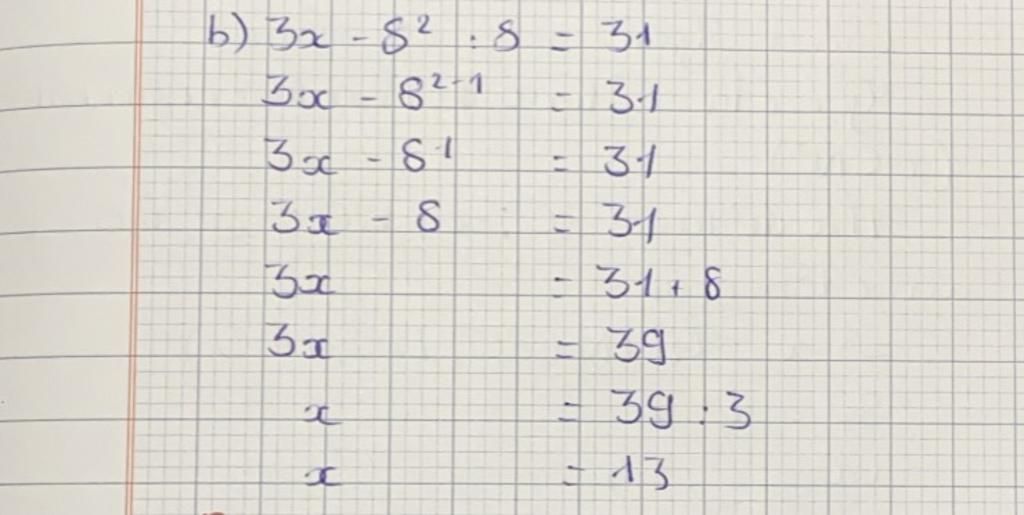 b) 3x - 8² : 8 = 31
3x - 8²⁻¹ = 31
3x - 8¹ = 31
3x - 8 = 31
3x = 31 + 8
3x = 39
x = 39 : 3
x = 13